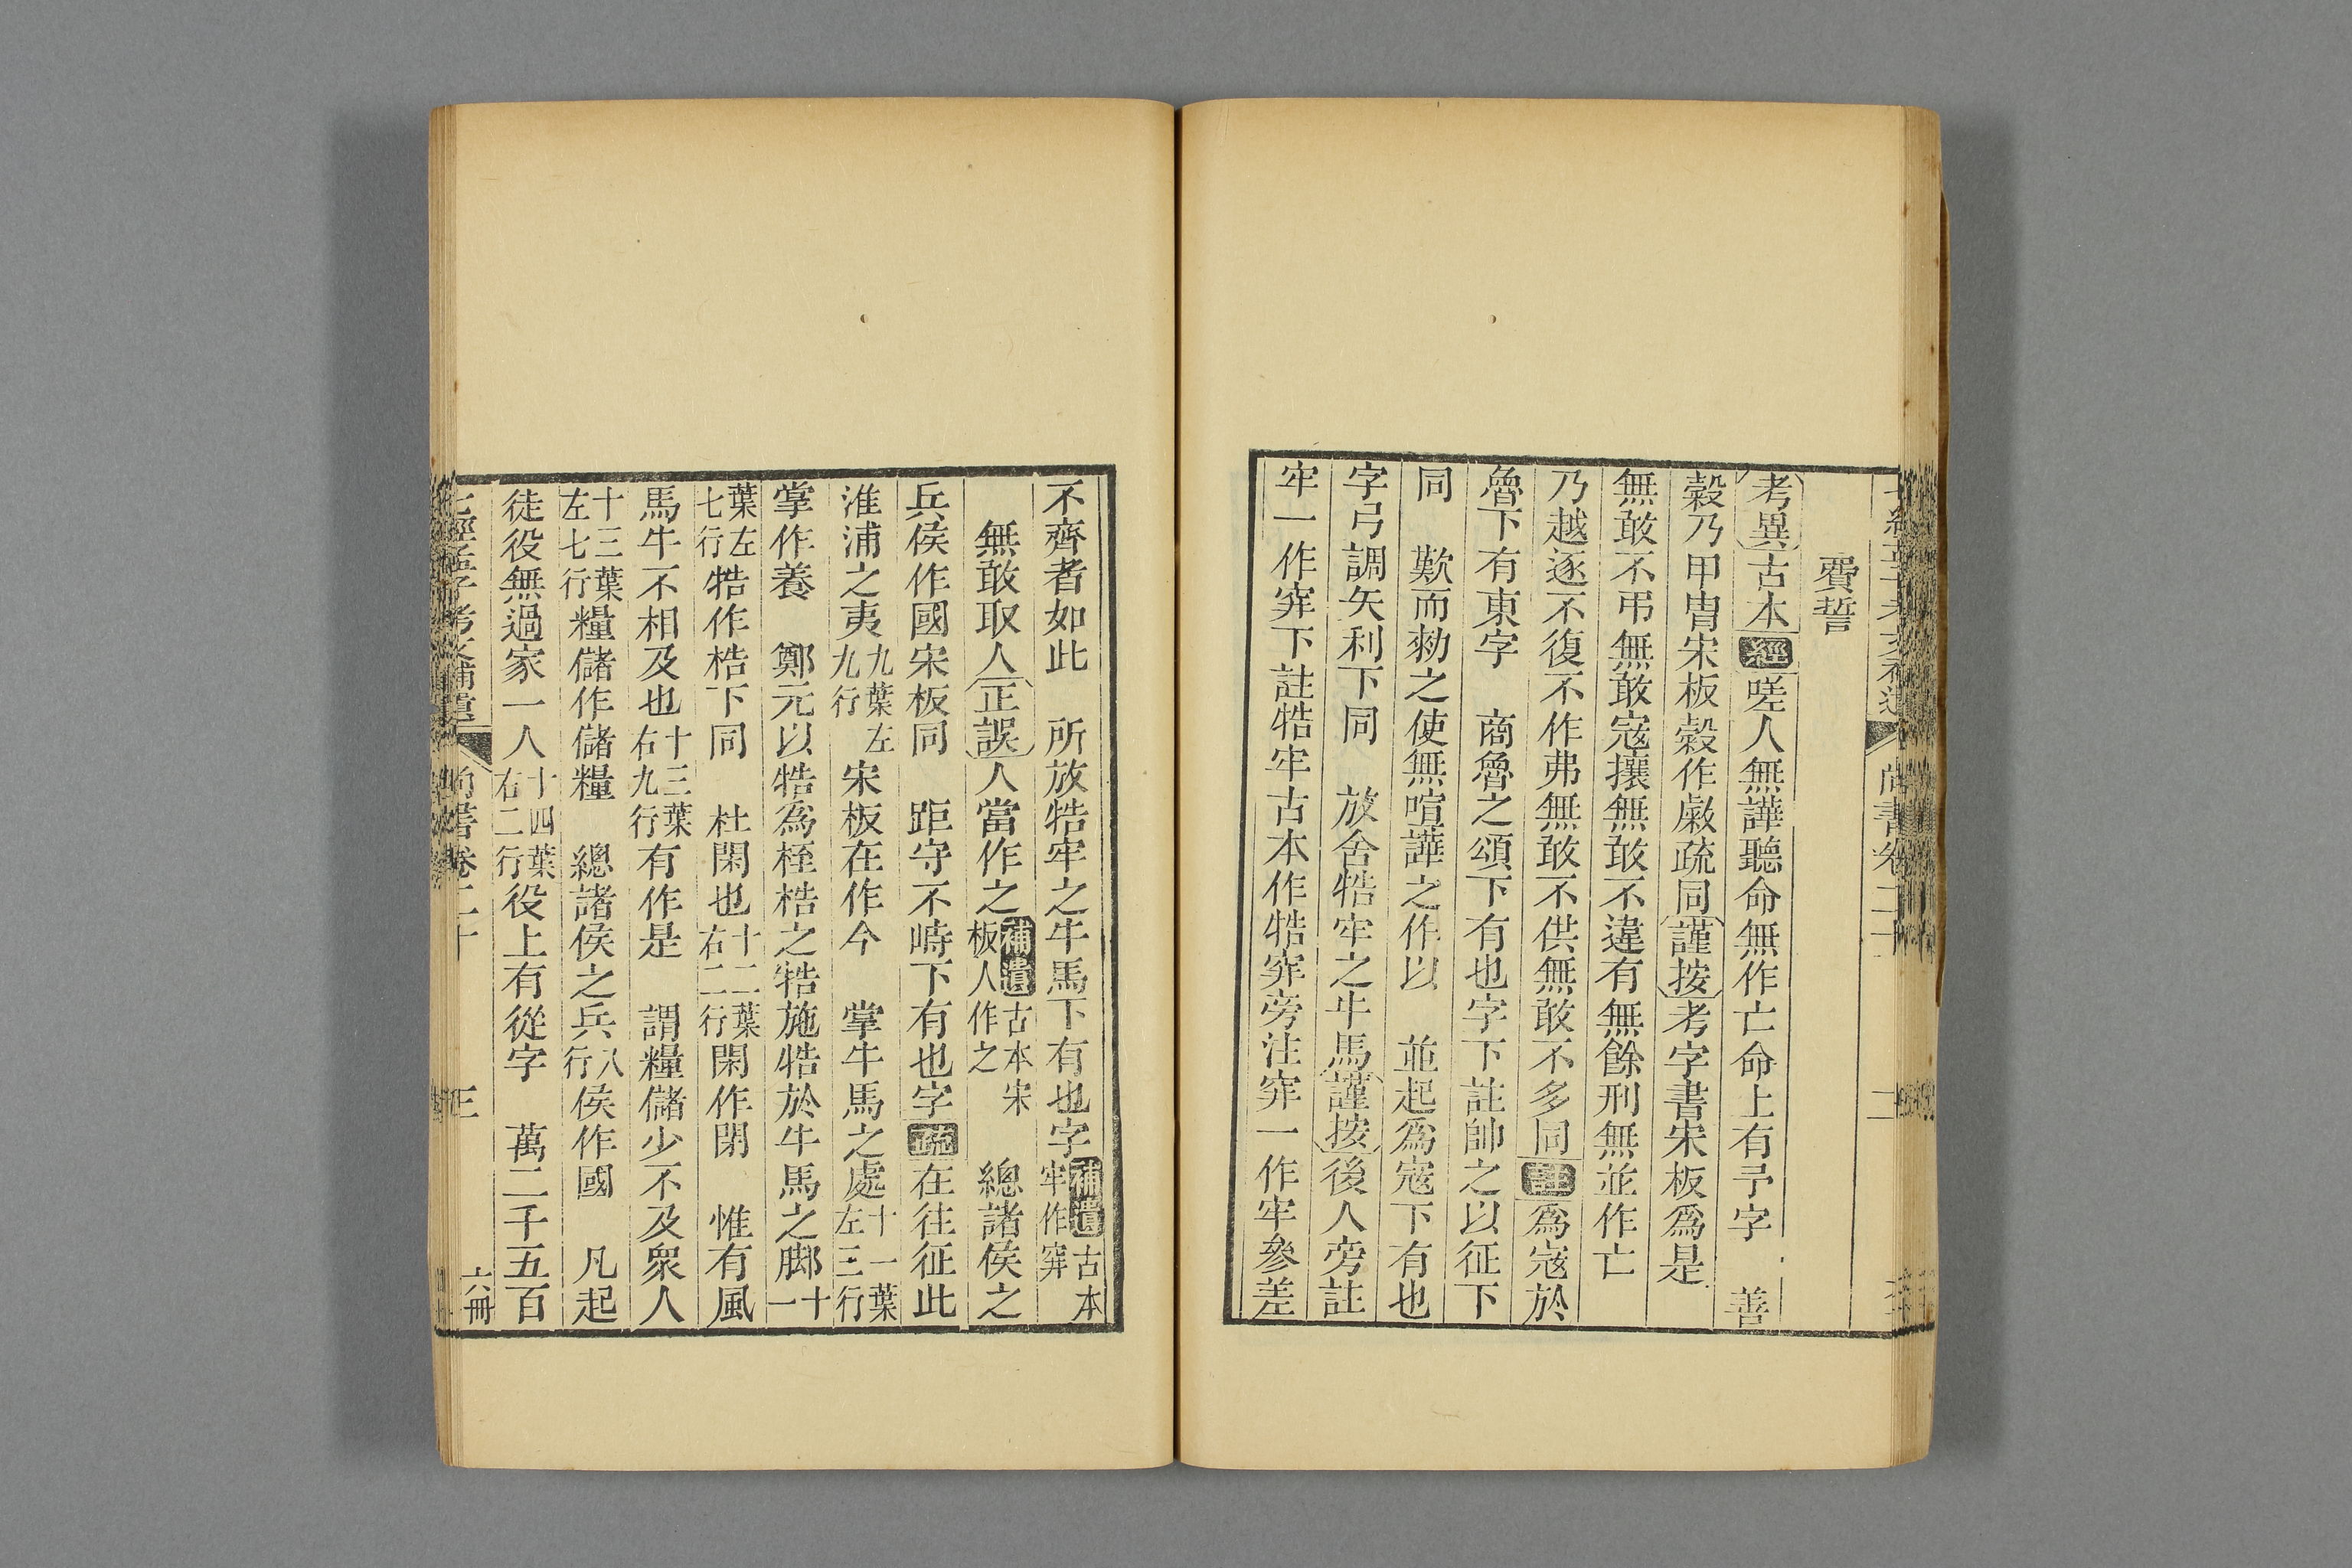 尚書卷二十
費誓
考異古本經嗟人無譁聽命無作亡命上有予字　善
榖乃甲冑宋板榖作㪇疏同謹按考字書宋板爲是
無敢不弔無敢寇攘無敢不違有無餘刑無並作亡
乃越逐不復不作弗無敢不供無敢不多同註爲寇於
魯下有東字　商魯之頌下有也字下註帥之以征下
同　歎而勑之使無喧譁之作以　並起爲寇下有也
字弓調矢利下同　放舍牿牢之牛馬謹按後人旁註
牢一作穽下註牿牢古本作牿穽旁注穽一作牢參差
不齊者如此　所放牿牢之牛馬下有也字補遺古本牢作穽
無敢取人正誤人當作之補遺古本宋板人作之　總諸侯之
兵侯作國宋板同　距守不峙下有也字疏在往征此
淮浦之夷九葉左九行　宋板在作今　掌牛馬之處十一葉左三行
掌作養　鄭元以牿爲桎梏之牿施牿於牛馬之脚十一
葉左七行牿作梏下同　杜閑也十二葉右二行閑作閉　惟有風
馬牛不相及也十三葉右九行有作是　謂糧儲少不及衆人
十三葉左七行糧儲作儲糧　總諸侯之兵八行侯作國　凡起
徒役無過家一人十四葉右二行役上有從字　萬二千五百
七經孟子考文補遺　尚書卷二十　三　六冊